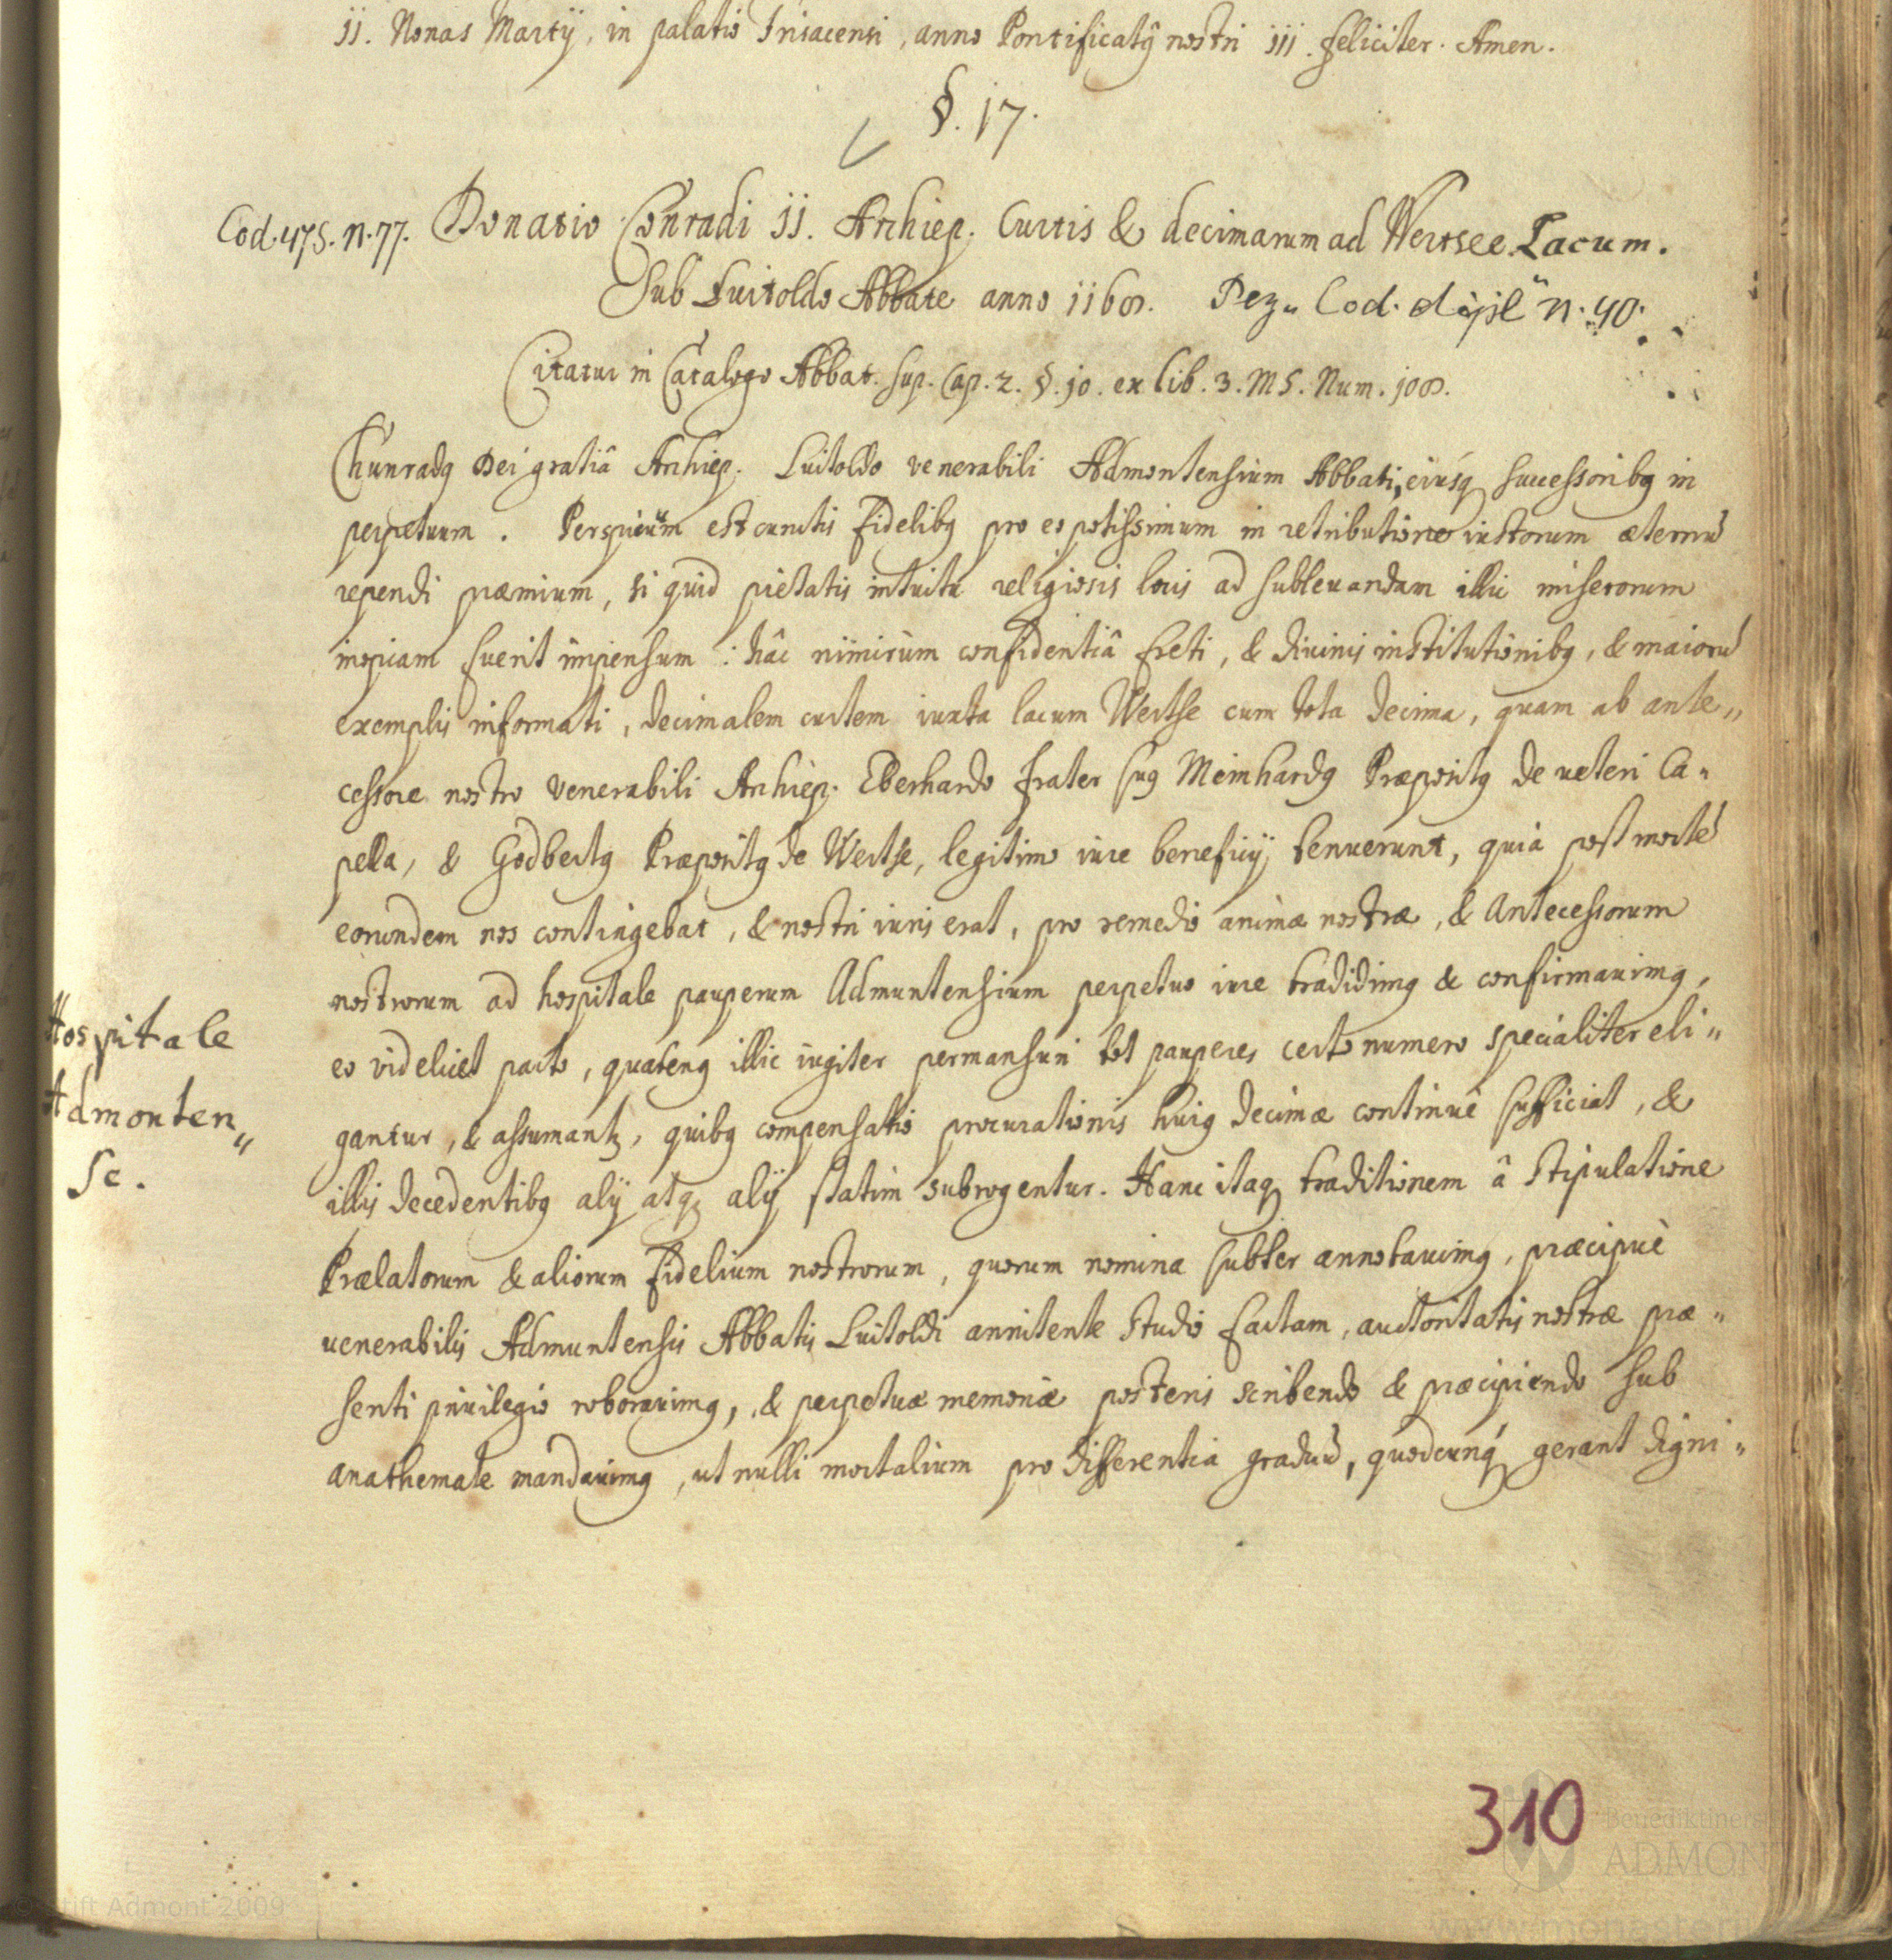 ii. Nonas Martij, in palatio Frisacensi, anno Pontificatꝰ nostri iii. feliciter. Amen.
§. 17.
Cod. 475. n. 77. Donatio Conradi ii. Archiep. Curtis & decimarum ad Wertsee Lacum.
Sub Luitoldo Abbate anno 1168. Pez. Cod. dipl. n. 40.
Citatur in Catalogo Abbat. sup. Cap. 2. §. 10. ex lib. 3. MS. Num. 108.
Chunradꝰ Dei gratiâ Archiep. Luitoldo venerabili Admontensium Abbati, eiusq́ successoribꝰ in
perpetuum. Perspicuum est cunctis fidelibꝰ pro eo potissimum in retributione iustorum æternũ
rependi præmium, si quid pietatis intuitu religiosis locis ad subleuandam illic miserorum
inopiam fuerit impensum: hâc nimirùm confidentiâ freti, & diuinis institutionibꝰ, & maiorũ
exemplis informati, decimalem curtem iuxta lacum Wertse cum tota decima, quam ab ante„
cessore nostro venerabili Archiep. Eberhardo frater suꝰ Meinhardꝰ Præpositꝰ de ueteri Ca„
pella, & Godbertꝰ Præpositꝰ de Wertse, legitimo iure beneficij tenuerunt, quia post mortẽ
eorundem nos contingebat, & nostri iuris erat, pro remedio animæ nostræ, & Antecessorum
nostrorum ad hospitale pauperum Admuntensium perpetuo iure tradidimꝰ & confirmauimꝰ,
Hospitale
Admonten„
se.
eo videlicet pacto, quatenꝰ illic iugiter permansuri tot pauperes certo numero specialiter eli„
gantur, & assumantꝛ, quibꝰ compensatio procurationis huiꝰ decimæ continuè sufficiat, &
illis decedentibꝰ alij atq́ alij statim subrogentur. Hanc itaq́ traditionem â stipulatione
Prælatorum & aliorum fidelium nostrorum, quorum nomina subter annotauimꝰ, præcipuè
uenerabilis Admuntensis Abbatis Luitoldi annitente studio factam, auctoritatis nostræ præ„
senti priuilegio roborauimꝰ, & perpetuæ memoriæ posteris scribendo & præcipiendo sub
anathemate mandauimꝰ, ut nulli mortalium pro differentia graduũ, quodcunq́ gerant digni„
310
Benediktiners
ADMON
© Stift Admont 2009
www.monasteri